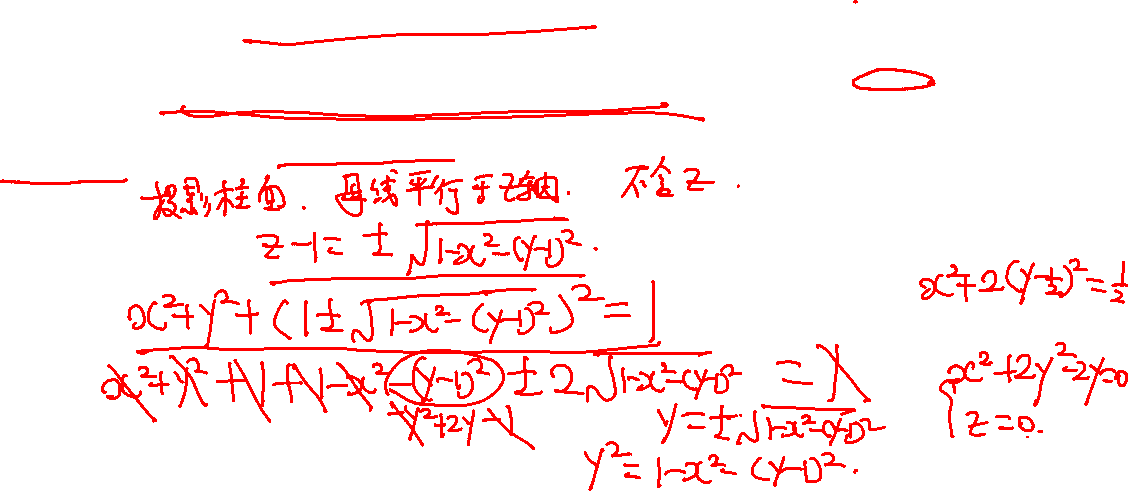 投影柱面. 母线平行于z轴. 不含z.
z-1=±√(1-x²-(y-1)²).
x²+y²+(1±√(1-x²-(y-1)²))²=1
x²+y²+1+1-x²-(y-1)²±2√(1-x²-(y-1)²)=1
-y²+2y-1
y=±√(1-x²-(y-1)²)
y²=1-x²-(y-1)².
x²+2(y-½)²=½
{x²+2y²-2y=0
z=0.